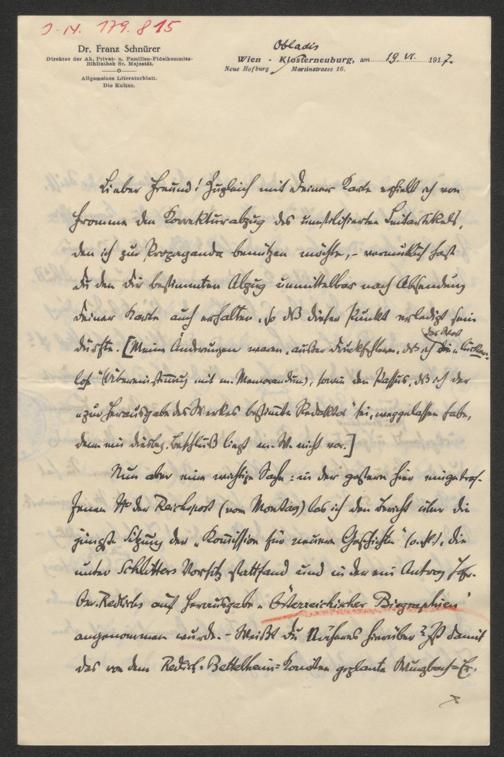 J. N. 179.815
Dr. Franz Schnürer
Direktor der Ah. Privat- u. Familien-Fideikommiss-
Bibliothek Sr. Majestät.
Allgemeines Literaturblatt.
Die Kultur.
Obladis
Wien - Klosterneuburg, am 19. VI. 1917.
Neue Hofburg Martinstrasse 16.
Lieber Freund! Zugleich mit Deiner Karte erhielt ich von
Fromme den Korrekturabzug des umstilisierten Leitartikels,
den ich zur Propaganda benützen möchte, - vermutlich hast
Du den Dir bestimmten Abzug unmittelbar nach Absendung
Deiner Karte auch erhalten, so daß dieser Punkt erledigt sein
dürfte. [Meine Änderungen waren, außer Druckfehlern, daß ich
(Übereinstimmung mit m. Memorandum), sowie den Passus, daß ich der
"zur Herausgabe des Werkes bestimmte Redaktor" sei, weggelassen habe,
denn ein diesbez. Beschluß liegt m. W. nicht vor.]
Nun aber eine wichtige Sache: in der gestern hier eingetrof-
fenen № der Reichspost (vom Montag) las ich den Bericht über die
jüngste Sitzung der "Komission für neuere Geschichte" (o. ä.), die
unter Schlitters Vorsitz stattfand und in der ein Antrag
Osw. Redlichs auf Herausgabe "Österreichischer Biographien"
angenommen wurde. - Weißt Du Näheres hierüber? Ist damit
das von dem Redlich-Bettelheim-Komitee geplante Wurzbach-Er-